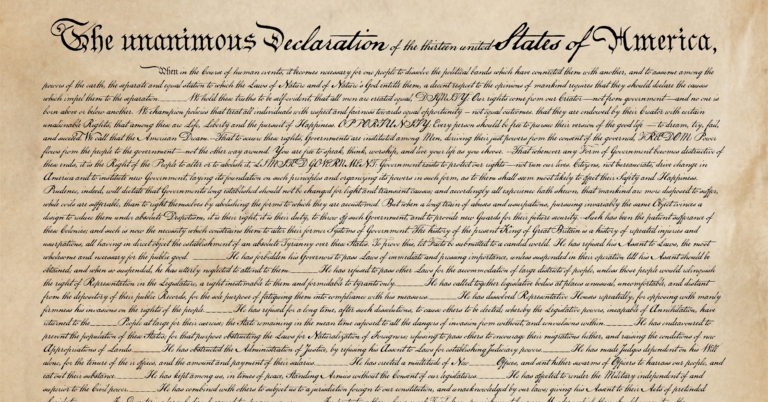 The unanimous Declaration of the thirteen united States of America,
When in the Course of human events, it becomes necessary for one people to dissolve the political bands which have connected them with another, and to assume among the
powers of the earth, the separate and equal station to which the Laws of Nature and of Nature's God entitle them, a decent respect to the opinions of mankind requires that they should declare the causes
which impel them to the separation. We hold these truths to be self-evident, that all men are created equal, DIGNITY Our rights come from our Creator—not from government—and no one is
born above or below another. We champion policies that treat all individuals with respect and fairness towards equal opportunity—not equal outcomes. that they are endowed by their Creator with certain
unalienable Rights, that among these are Life, Liberty and the pursuit of Happiness. OPPORTUNITY Every person should be free to pursue their version of the good life—to dream, try, fail,
and succeed. We call that the American Dream. That to secure these rights, Governments are instituted among Men, deriving their just powers from the consent of the governed, FREEDOM Power
flows from the people to the government—not the other way around. You are free to speak, think, worship, and live your life as you choose. That whenever any Form of Government becomes destructive
of these ends, it is the Right of the People to alter or to abolish it, LIMITED GOVERNMENT Government exists to protect our rights—not run our lives. Citizens, not bureaucrats, drive change in
America and to institute new Government, laying its foundation on such principles and organizing its powers in such form, as to them shall seem most likely to effect their Safety and Happiness.
Prudence, indeed, will dictate that Governments long established should not be changed for light and transient causes; and accordingly all experience hath shewn, that mankind are more disposed to suffer,
while evils are sufferable, than to right themselves by abolishing the forms to which they are accustomed. But when a long train of abuses and usurpations, pursuing invariably the same Object evinces a
design to reduce them under absolute Despotism, it is their right, it is their duty, to throw off such Government, and to provide new Guards for their future security. Such has been the patient sufferance of
these Colonies; and such is now the necessity which constrains them to alter their former Systems of Government. The history of the present King of Great Britain is a history of repeated injuries and
usurpations, all having in direct object the establishment of an absolute Tyranny over these States. To prove this, let Facts be submitted to a candid world. He has refused his Assent to Laws, the most
wholesome and necessary for the public good. He has forbidden his Governors to pass Laws of immediate and pressing importance, unless suspended in their operation till his Assent should be
obtained; and when so suspended, he has utterly neglected to attend to them. He has refused to pass other Laws for the accommodation of large districts of people, unless those people would relinquish
the right of Representation in the Legislature, a right inestimable to them and formidable to tyrants only. He has called together legislative bodies at places unusual, uncomfortable, and distant
from the depository of their public Records, for the sole purpose of fatiguing them into compliance with his measures. He has dissolved Representative Houses repeatedly, for opposing with manly
firmness his invasions on the rights of the people. He has refused for a long time, after such dissolutions, to cause others to be elected; whereby the Legislative powers, incapable of Annihilation, have
returned to the People at large for their exercise; the State remaining in the mean time exposed to all the dangers of invasion from without, and convulsions within. He has endeavoured to
prevent the population of these States; for that purpose obstructing the Laws for Naturalization of Foreigners; refusing to pass others to encourage their migrations hither, and raising the conditions of new
Appropriations of Lands. He has obstructed the Administration of Justice, by refusing his Assent to Laws for establishing Judiciary powers. He has made Judges dependent on his Will
alone, for the tenure of their offices, and the amount and payment of their salaries. He has erected a multitude of New Offices, and sent hither swarms of Officers to harrass our people, and
eat out their substance. He has kept among us, in times of peace, Standing Armies without the Consent of our legislatures. He has affected to render the Military independent of and
superior to the Civil power. He has combined with others to subject us to a jurisdiction foreign to our constitution, and unacknowledged by our laws; giving his Assent to their Acts of pretended